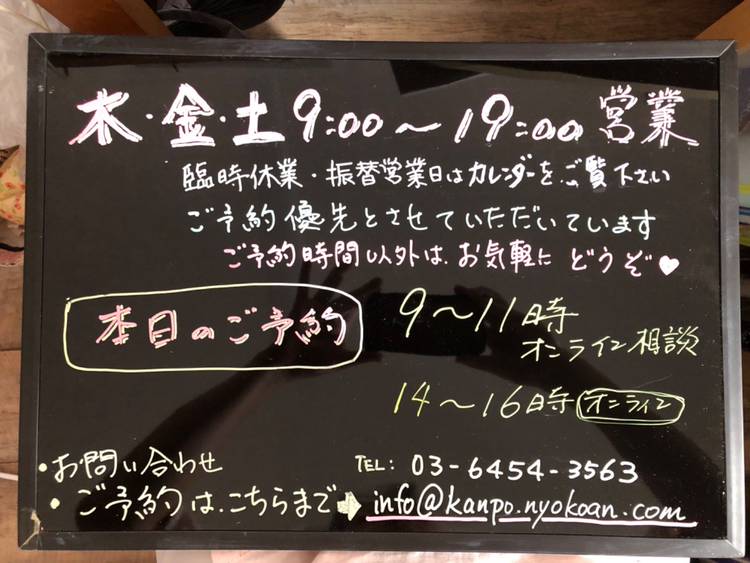 木・金・土 9:00～19:00 営業
臨時休業・振替営業日はカレンダーをご覧下さい
ご予約優先とさせていただいています
ご予約時間以外は、お気軽に どうぞ♥
本日のご予約
9～11時
オンライン相談
14～16時 オンライン
・お問い合わせ TEL: 03-6454-3563
・ご予約は、こちらまで➡ info@kanpo.nyokoan.com